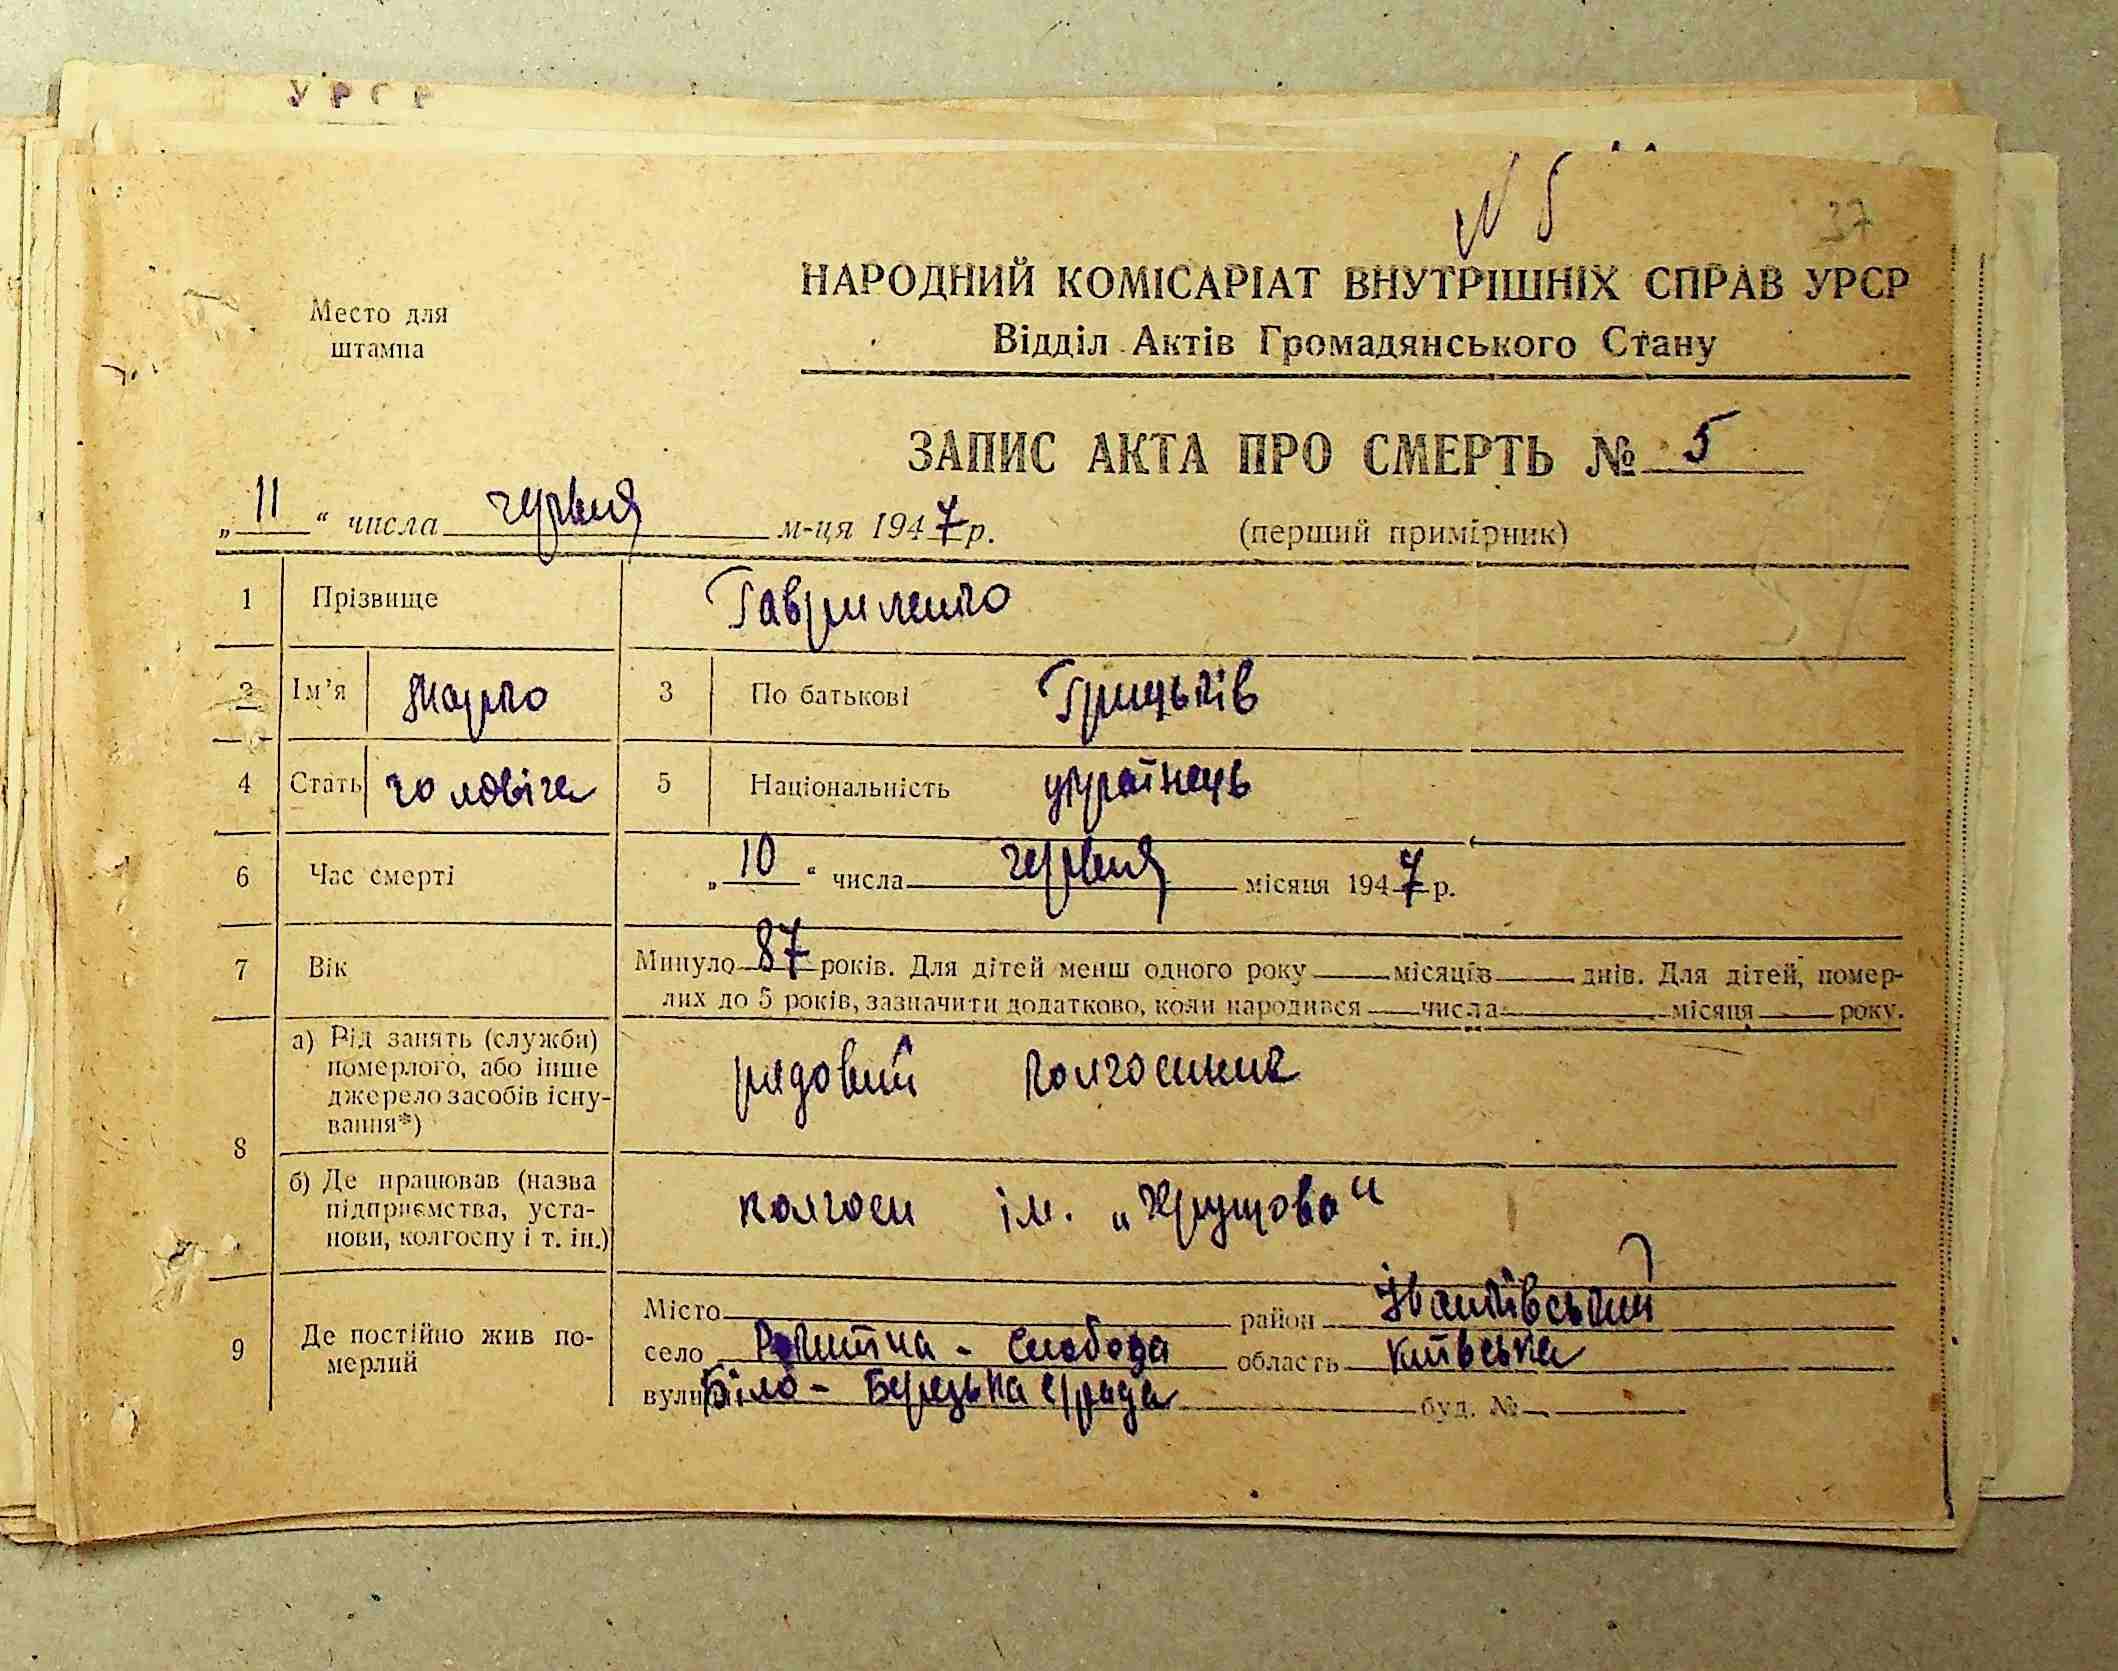 УРСР
№ 5
37
Место для
штампа
НАРОДНИЙ КОМІСАРІАТ ВНУТРІШНІХ СПРАВ УРСР
Відділ Актів Громадянського Стану
ЗАПИС АКТА ПРО СМЕРТЬ № 5
„11“ числа червня м-ця 1947 р. (перший примірник)
1 Прізвище Гавриленко
2 Ім'я Марко 3 По батькові Грицьків
4 Стать чоловіча 5 Національність українець
6 Час смерті „10“ числа червня місяця 1947 р.
7 Вік Минуло 87 років. Для дітей менш одного року місяців днів. Для дітей, помер-
лих до 5 років, зазначити додатково, коли народився числа місяця року.
8 а) Рід занять (служби)
померлого, або інше
джерело засобів існу-
вання*)
рядовий колгоспник
б) Де працював (назва
підприємства, уста-
нови, колгоспу і т. ін.)
колгосп ім. „Хрущова“
9 Де постійно жив по-
мерлий
Місто район Іванківський
село Рокитна - Слобода область Київська
вулиця Біло - Березька с/рада буд. №